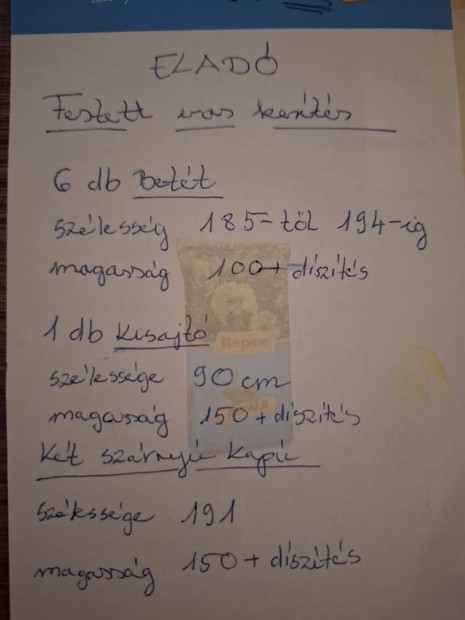 ELADÓ
Festett vas kerítés
6 db Betét
szélesség 185-től 194-ig
magasság 100+ díszítés
1 db Kisajtó
szélessége 90 cm
magasság 150 + díszítés
Két szárnyú Kapú
szélessége 191
magasság 150 + díszítés
Repce